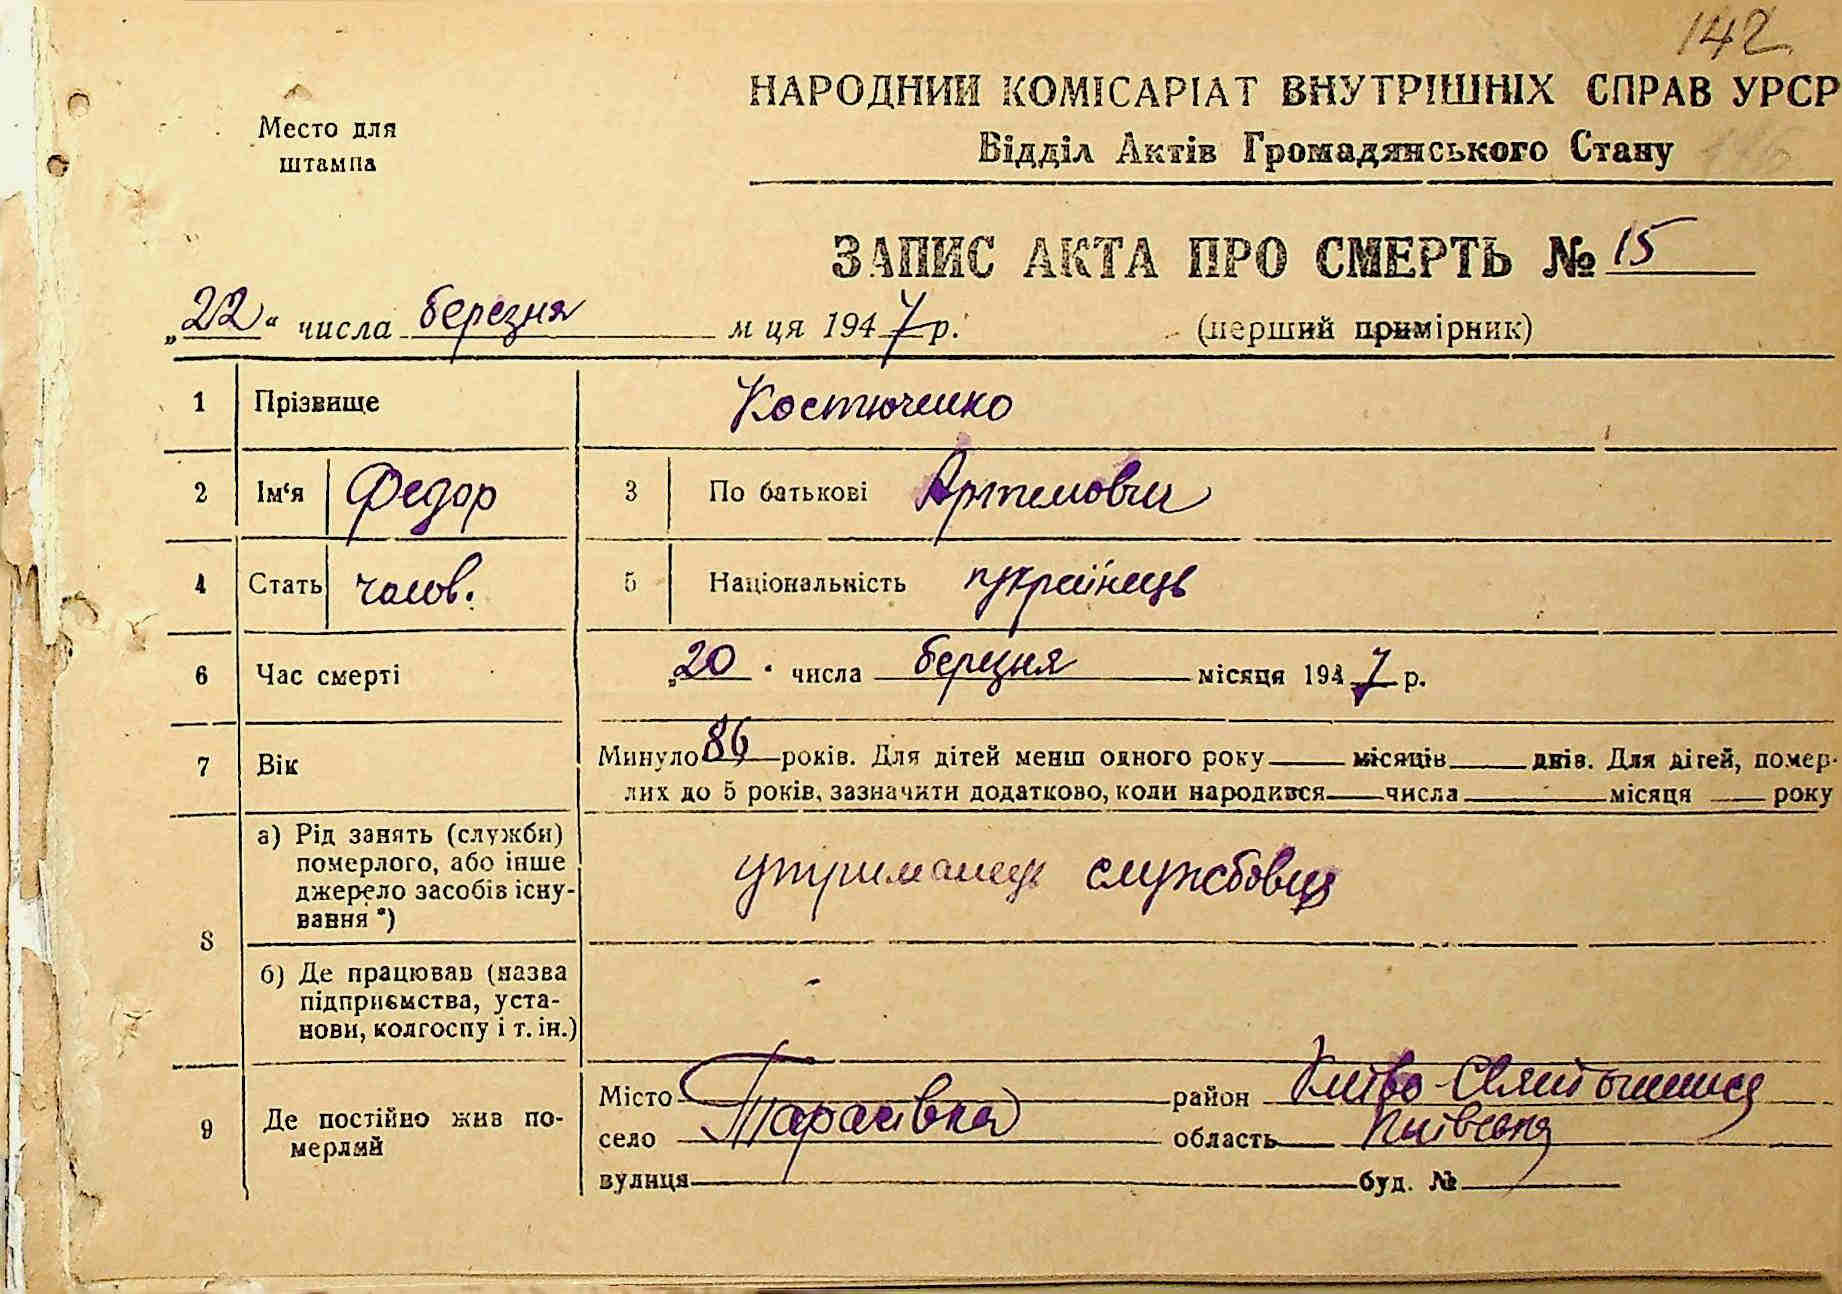 142
НАРОДНИЙ КОМІСАРІАТ ВНУТРІШНІХ СПРАВ УРСР
Место для
штампа
Відділ Актів Громадянського Стану
ЗАПИС АКТА ПРО СМЕРТЬ № 15
„22“ числа березня м ця 1947 р. (перший примірник)
1 Прізвище Костюченко
2 Ім‘я Федор 3 По батькові Артемович
4 Стать чолов. 5 Національність українець
6 Час смерті „20 “ числа березня місяця 1947 р.
7 Вік Минуло 86 років. Для дітей менш одного року місяців днів. Для дітей, помер-
лих до 5 років, зазначити додатково, коли народився числа місяця року
8 а) Рід занять (служби)
померлого, або інше
джерело засобів існу-
вання *)
утриманець службовця
б) Де працював (назва
підприємства, уста-
нови, колгоспу і т. ін.)
-
9 Де постійно жив по-
мерлий
Місто район Києво-Святошинськ
село Тарасівка область Київська
вулиця буд. №